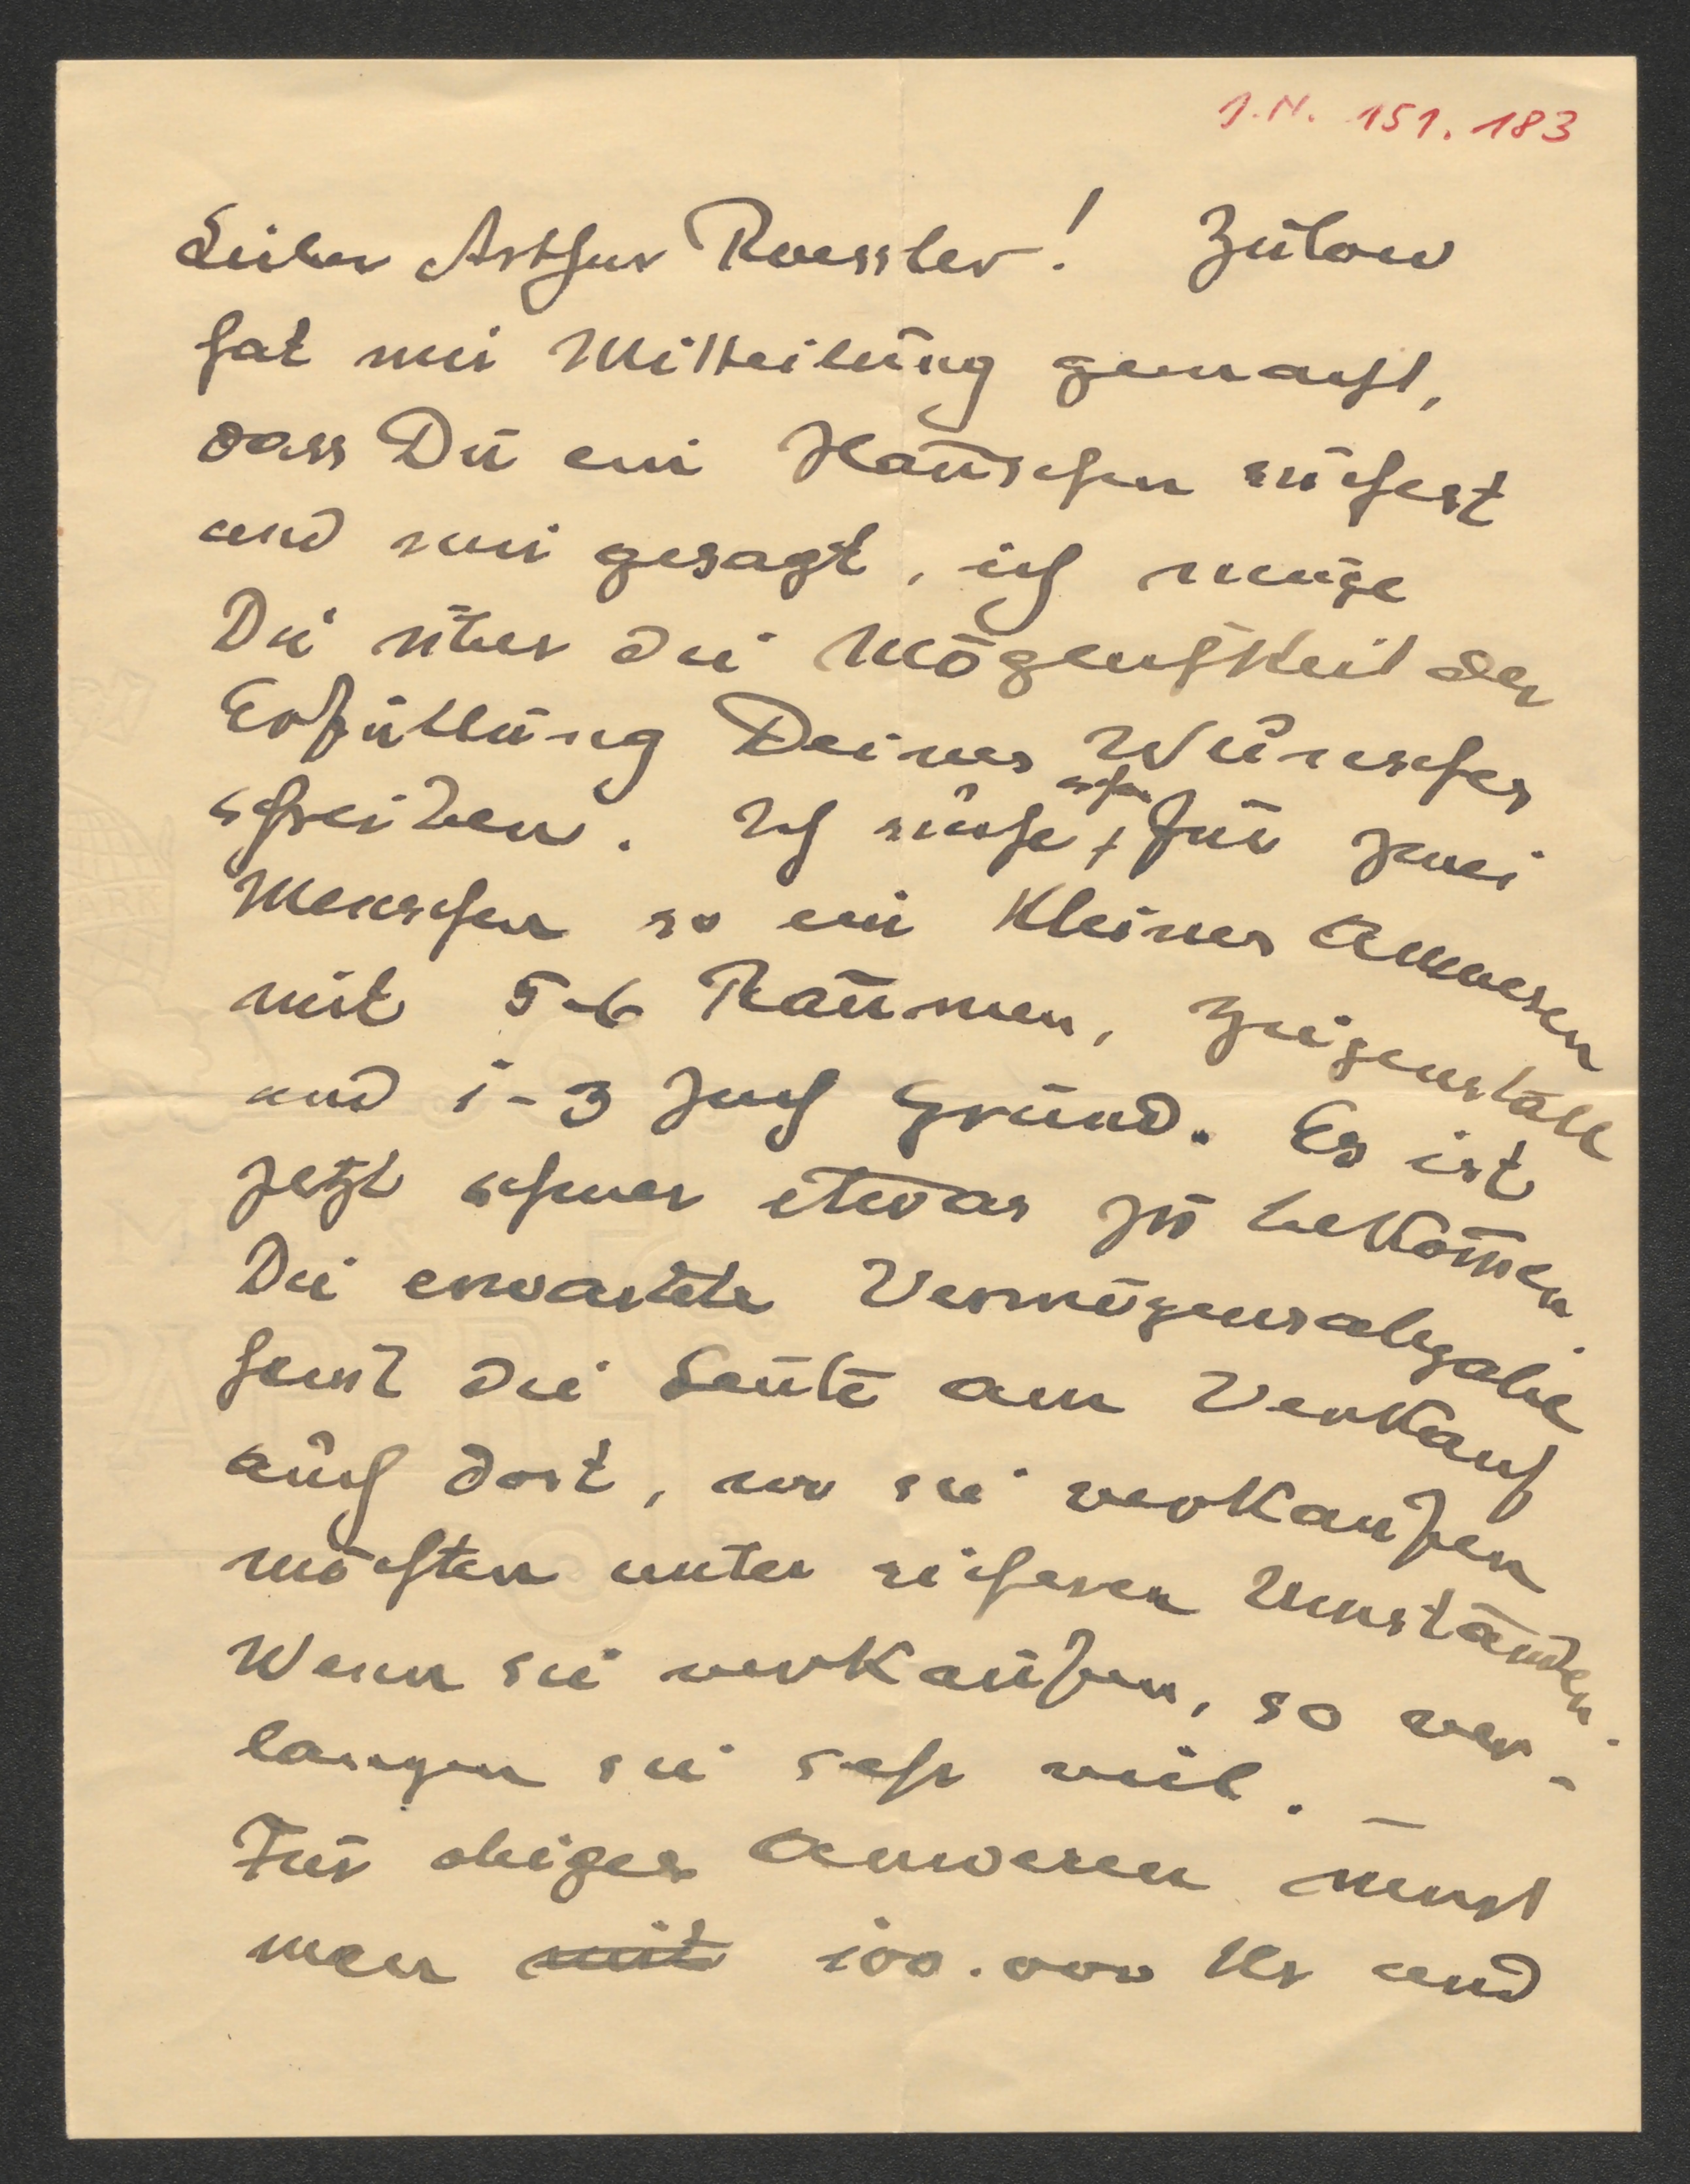 I.N. 151.183
Lieber Arthur Roessler! Zülow
hat mir Mitteilung gemacht,
dass Du ein Häuschen suchest
und mir gesagt, ich möge
Dir über die Möglichkeit der
Erfüllung Deines Wunsches
schreiben. Ich suche schon für zwei
Menschen so ein kleines Anwesen
mit 5-6 Räumen, Ziegenstall
und 1-3 Joch Grund. Es ist
jetzt schwer etwas zu bekom̅en.
Die erwartete Vermögensabgabe
hemt die Leute am Verkauf
auch dort, wo sie verkaufen
möchten unter sicheren Umständen.
Wenn sie verkaufen, so ver-
langen sie sehr viel. –
Für obiges Anwesen nennt
man mit 100.000 Kr und